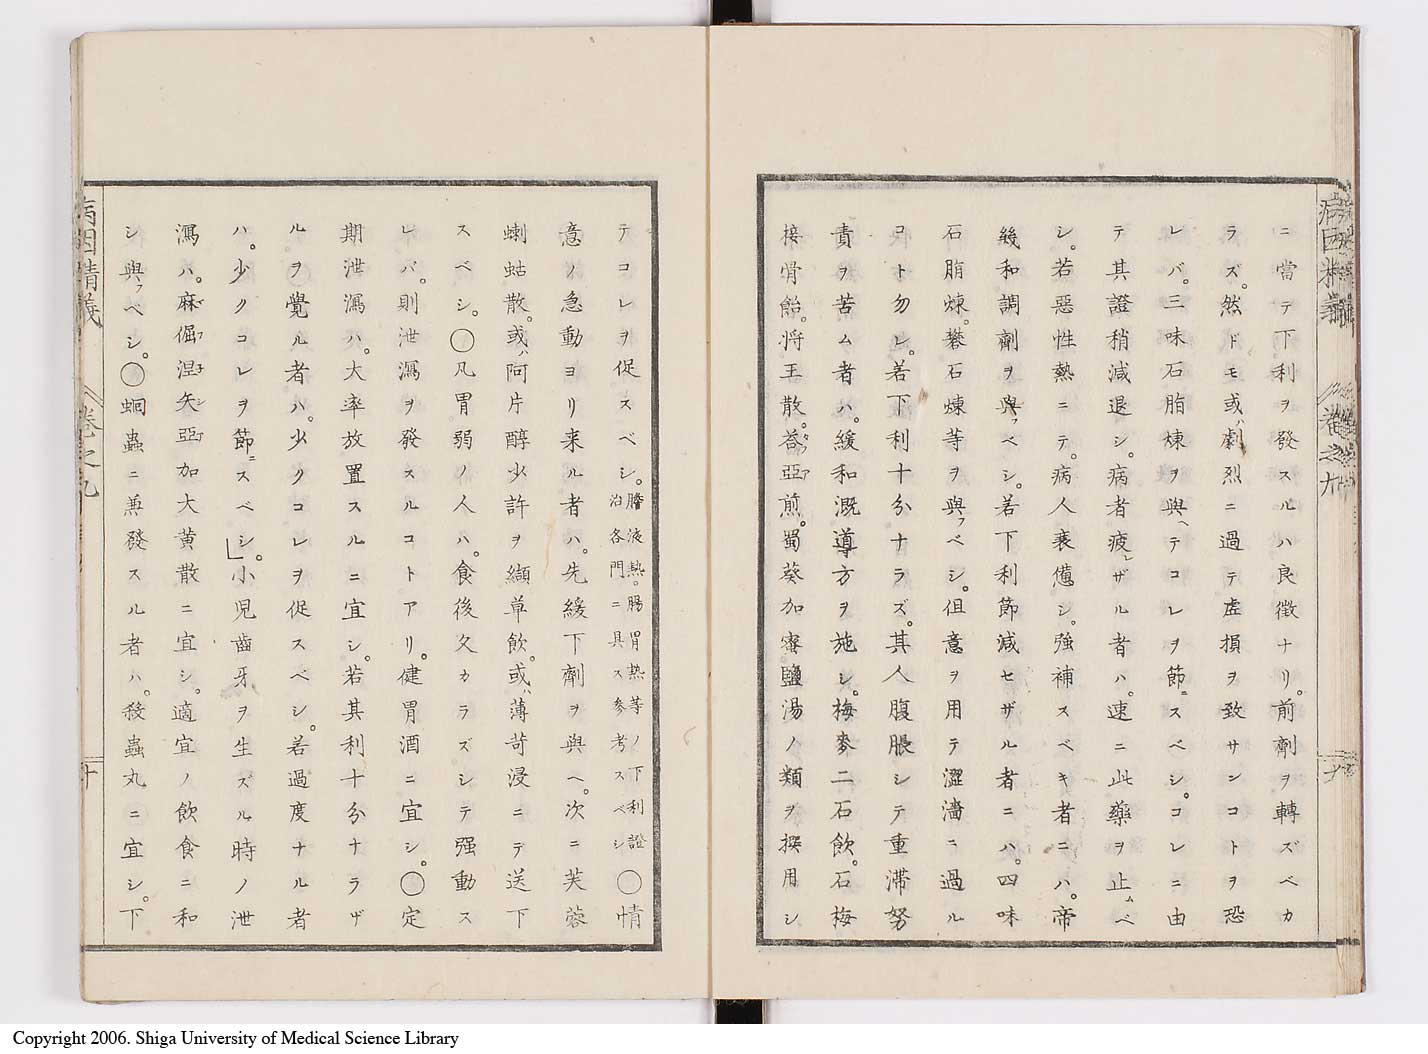 ニ當テ下利ヲ發スルハ良徴ナリ。前劑ヲ轉ズベカ
ラズ。然ドモ或ハ劇烈ニ過テ虚損ヲ致サンコトヲ恐
レバ。三味石脂煉ヲ與ヘテコレヲ節ニスベシ。コレニ由
テ其證稍減退シ。病者疲レザル者ハ。速ニ此藥ヲ止ムベ
シ。若惡性熱ニテ。病人衰憊シ。強補スベキ者ニハ。帝
幾和調劑ヲ與フベシ。若下利節減セザル者ニハ。四味
石脂煉。礬石煉等ヲ與フベシ。但意ヲ用テ澀濇ニ過ル
コト勿レ。若下利十分ナラズ。其人腹脹シテ重滯努
責ヲ苦ム者ハ。緩和溉導方ヲ施シ。梅麥二石飲。石梅
接骨飴。將王散。荅亞煎。蜀葵加蜜鹽湯ノ類ヲ撰用シ
テコレヲ促スベシ。膽液熱。腸胃熱等ノ下利證
治各門ニ具ス參考スベシ〇情
意ノ急動ヨリ来ル者ハ。先緩下劑ヲ與ヘ。次ニ芙蓉
蝲蛄散。或ハ阿片醇少許ヲ纈草飲。或ハ薄苛浸ニテ送下
スベシ。〇凡胃弱ノ人ハ。食後久カラズシテ强動ス
レバ。則泄瀉ヲ發スルコトアリ。健胃酒ニ宜シ。〇定
期泄瀉ハ。大率放置スルニ宜シ。若其利十分ナラザ
ルヲ覺ル者ハ。少クコレヲ促スベシ。若過度ナル者
ハ。少クコレヲ節ニスベシ。小兒齒牙ヲ生ズル時ノ泄
瀉ハ。麻倔涅矢亞加大黄散ニ宜シ。適宜ノ飲食ニ和
シ與フベシ。〇蛔蟲ニ兼發スル者ハ。殺蟲丸ニ宜シ。下
病因精義
卷之九
十